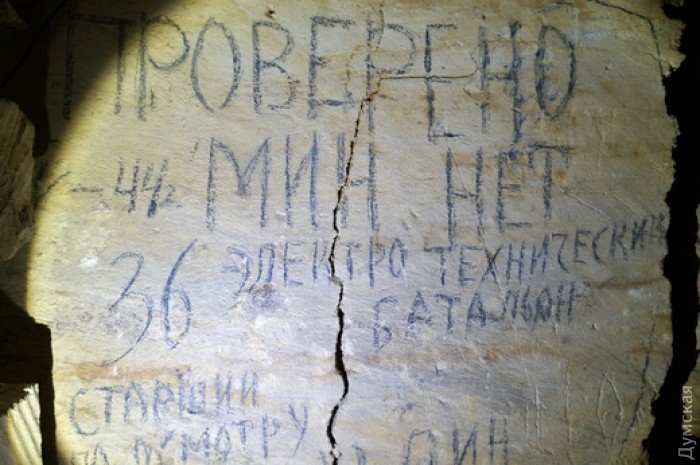 ПРОВЕРЕНО
МИН НЕТ
36 ЭЛЕКТРО ТЕХНИЧЕСКИЙ
БАТАЛЬОН
СТАРШИЙ
ПО ОСМОТРУ
Думская